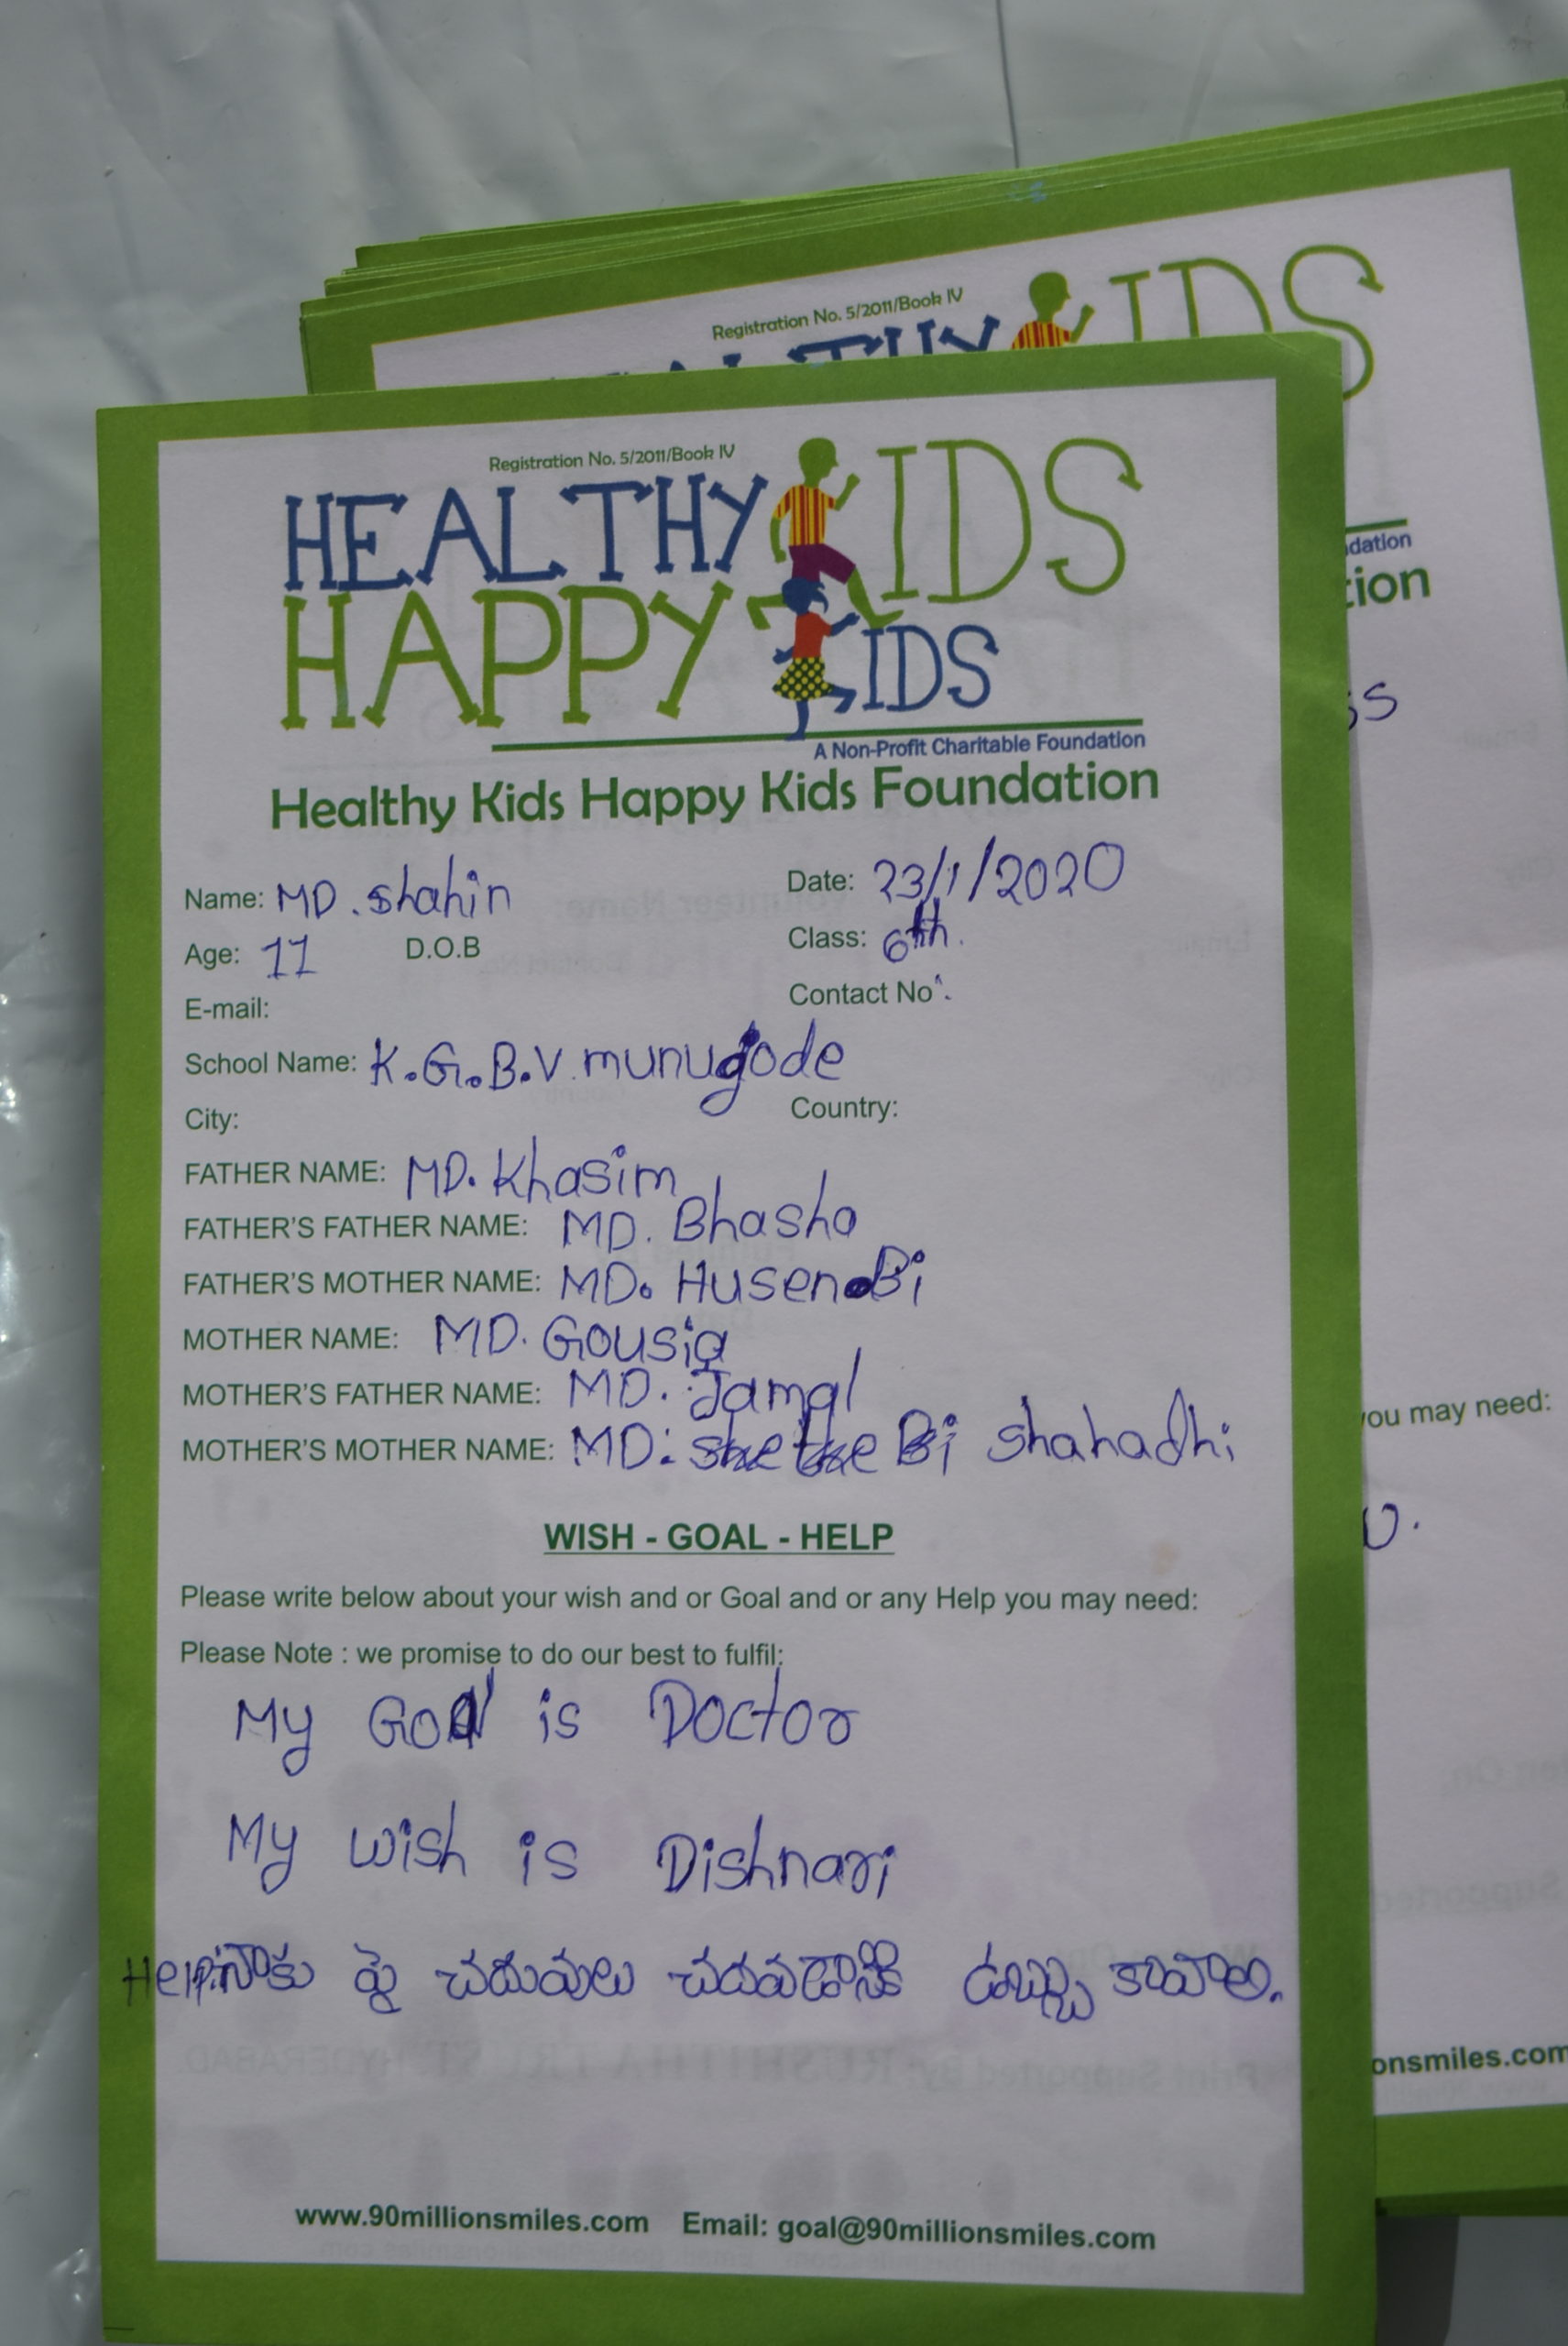 Registration No. 5/2011/Book IV
IDS
dation
tion
ss
you may need:
U.
onsmiles.com
Registration No. 5/2011/Book IV
HEALTHY KIDS
HAPPY KIDS
A Non-Profit Charitable Foundation
Healthy Kids Happy Kids Foundation
Name: MD. Shahin Date: 23/1/2020
Age: 11 D.O.B Class: 6th.
E-mail: Contact No.
School Name: K.G.B.V munugode
City: Country:
FATHER NAME: MD. Khasim
FATHER'S FATHER NAME: MD. Bhasha
FATHER'S MOTHER NAME: MD. Husen Bi
MOTHER NAME: MD. Gousia
MOTHER'S FATHER NAME: MD. Jamal
MOTHER'S MOTHER NAME: MD. Bi Shahadhi
WISH - GOAL - HELP
Please write below about your wish and or Goal and or any Help you may need:
Please Note : we promise to do our best to fulfil:
My Goal is Doctor
My wish is Dishnari
Help: నాకు పై చదువులు చదవడానికి డబ్బు కావాలి.
www.90millionsmiles.com Email: goal@90millionsmiles.com